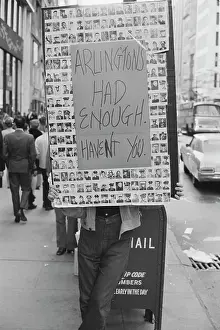 ARLINGTON'S
HAD
ENOUGH.
HAVEN'T YOU.
MAIL
ZIP CODE
NUMBERS
EARLY IN THE DAY